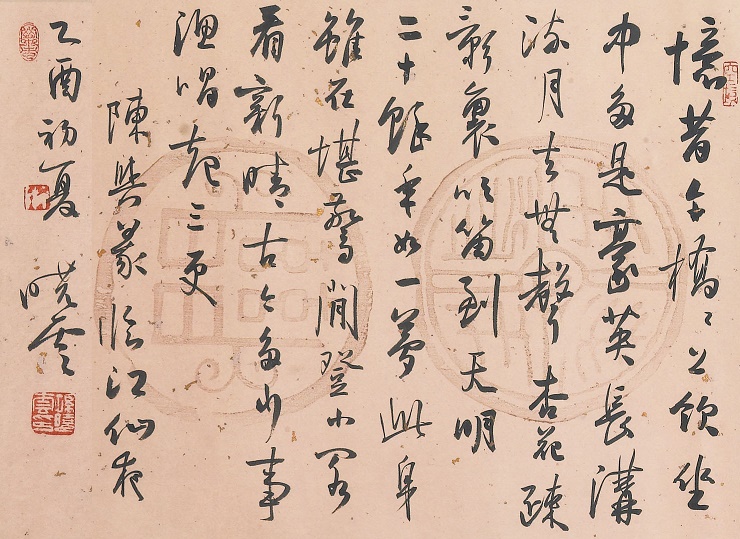 憶昔午橋〻上飲坐
中多是豪英長溝
流月去無聲杏花疎
影裏吹笛到天明
二十餘年如一夢此身
雖在堪驚閒登小閣
看新晴古今多少事
漁唱起三更
陳與義臨江仙夜
乙酉初夏
曉雲